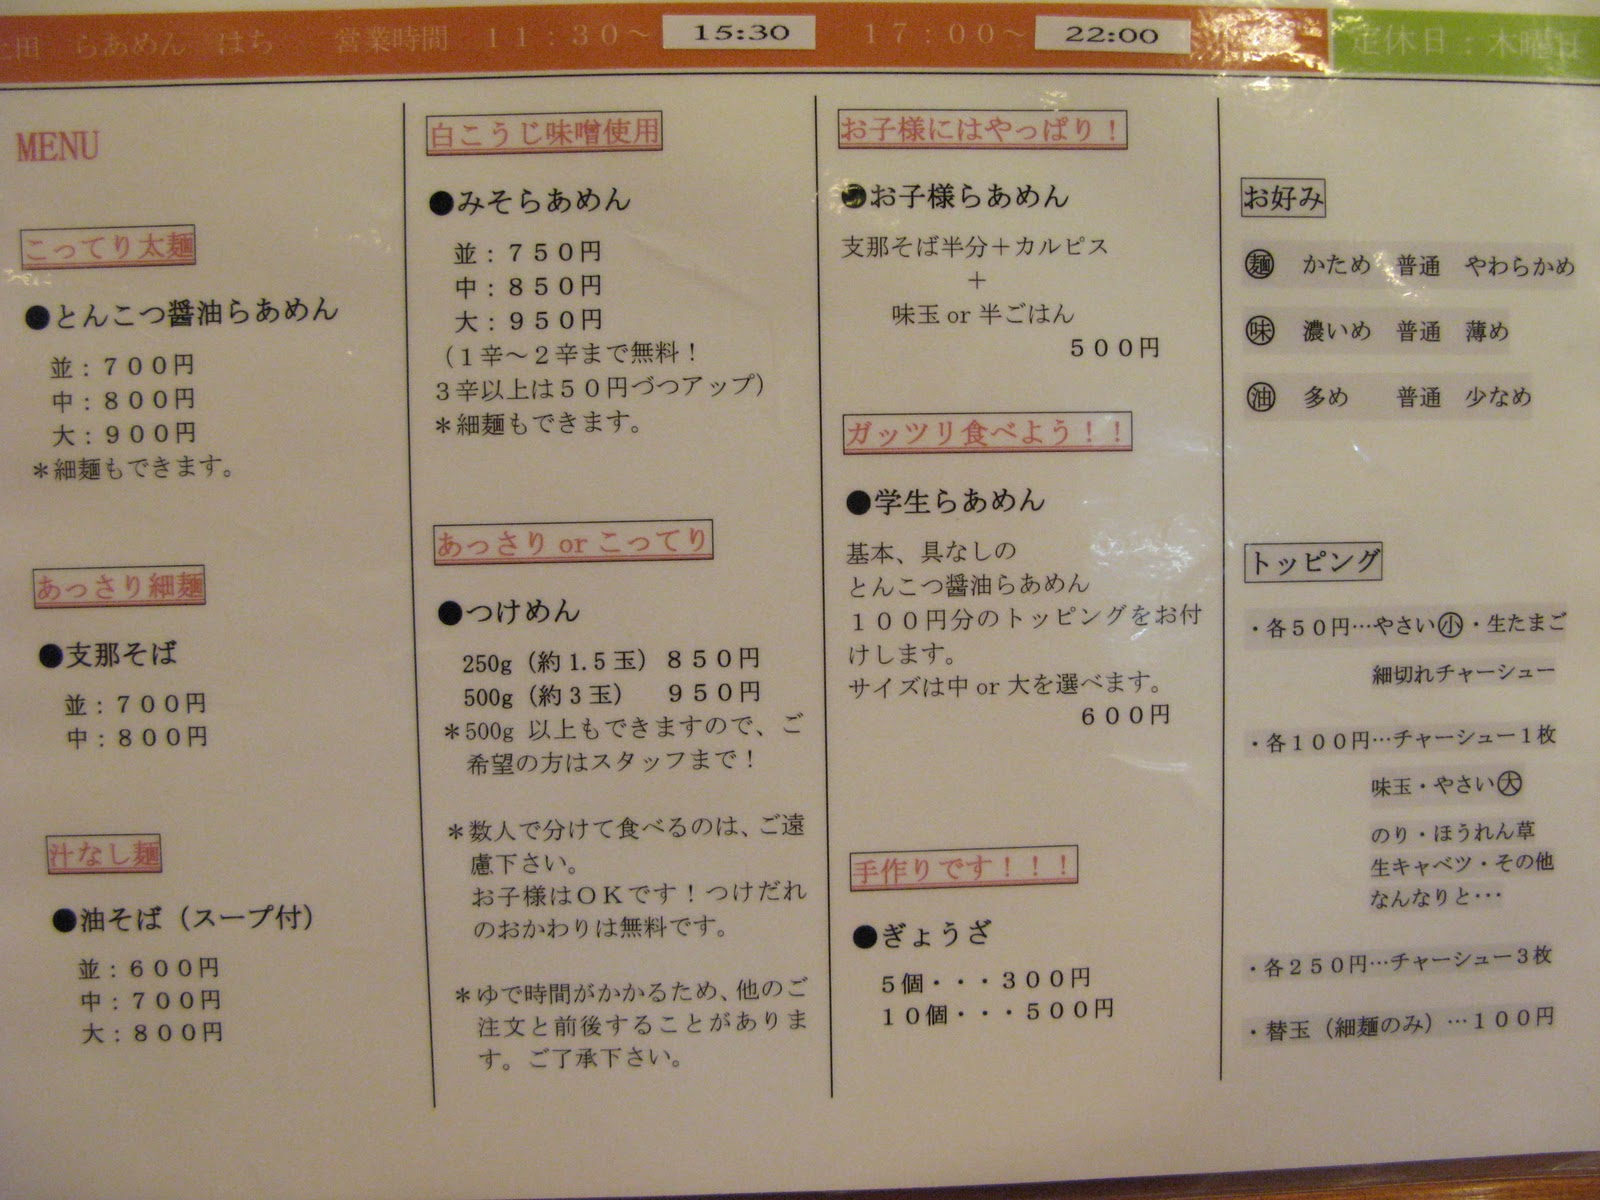 上田　らあめん　はち　営業時間　１１：３０～15:30　１７：００～22:00　定休日：木曜日
MENU
こってり太麺
●とんこつ醤油らあめん
並：７００円
中：８００円
大：９００円
＊細麺もできます。
あっさり細麺
●支那そば
並：７００円
中：８００円
汁なし麺
●油そば（スープ付）
並：６００円
中：７００円
大：８００円
白こうじ味噌使用
●みそらあめん
並：７５０円
中：８５０円
大：９５０円
（１辛～２辛まで無料！
３辛以上は５０円づつアップ）
＊細麺もできます。
あっさり or こってり
●つけめん
250g（約 1.5 玉）８５０円
500g（約 3 玉）　９５０円
＊500g 以上もできますので、ご
希望の方はスタッフまで！
＊数人で分けて食べるのは、ご遠
慮下さい。
お子様はＯＫです！つけだれ
のおかわりは無料です。
＊ゆで時間がかかるため、他のご
注文と前後することがありま
す。ご了承下さい。
お子様にはやっぱり！
●お子様らあめん
支那そば半分＋カルピス
＋
味玉 or 半ごはん
５００円
ガッツリ食べよう！！
●学生らあめん
基本、具なしの
とんこつ醤油らあめん
１００円分のトッピングをお付
けします。
サイズは中 or 大を選べます。
６００円
手作りです！！！
●ぎょうざ
５個・・・３００円
１０個・・・５００円
お好み
㊟麺　かため　普通　やわらかめ
味　濃いめ　普通　薄め
油　多め　普通　少なめ
トッピング
・各５０円…やさい㊙小・生たまご
細切れチャーシュー
・各１００円…チャーシュー１枚
味玉・やさい大
のり・ほうれん草
生キャベツ・その他
なんなりと･･･
・各２５０円…チャーシュー３枚
・替玉（細麺のみ）…１００円